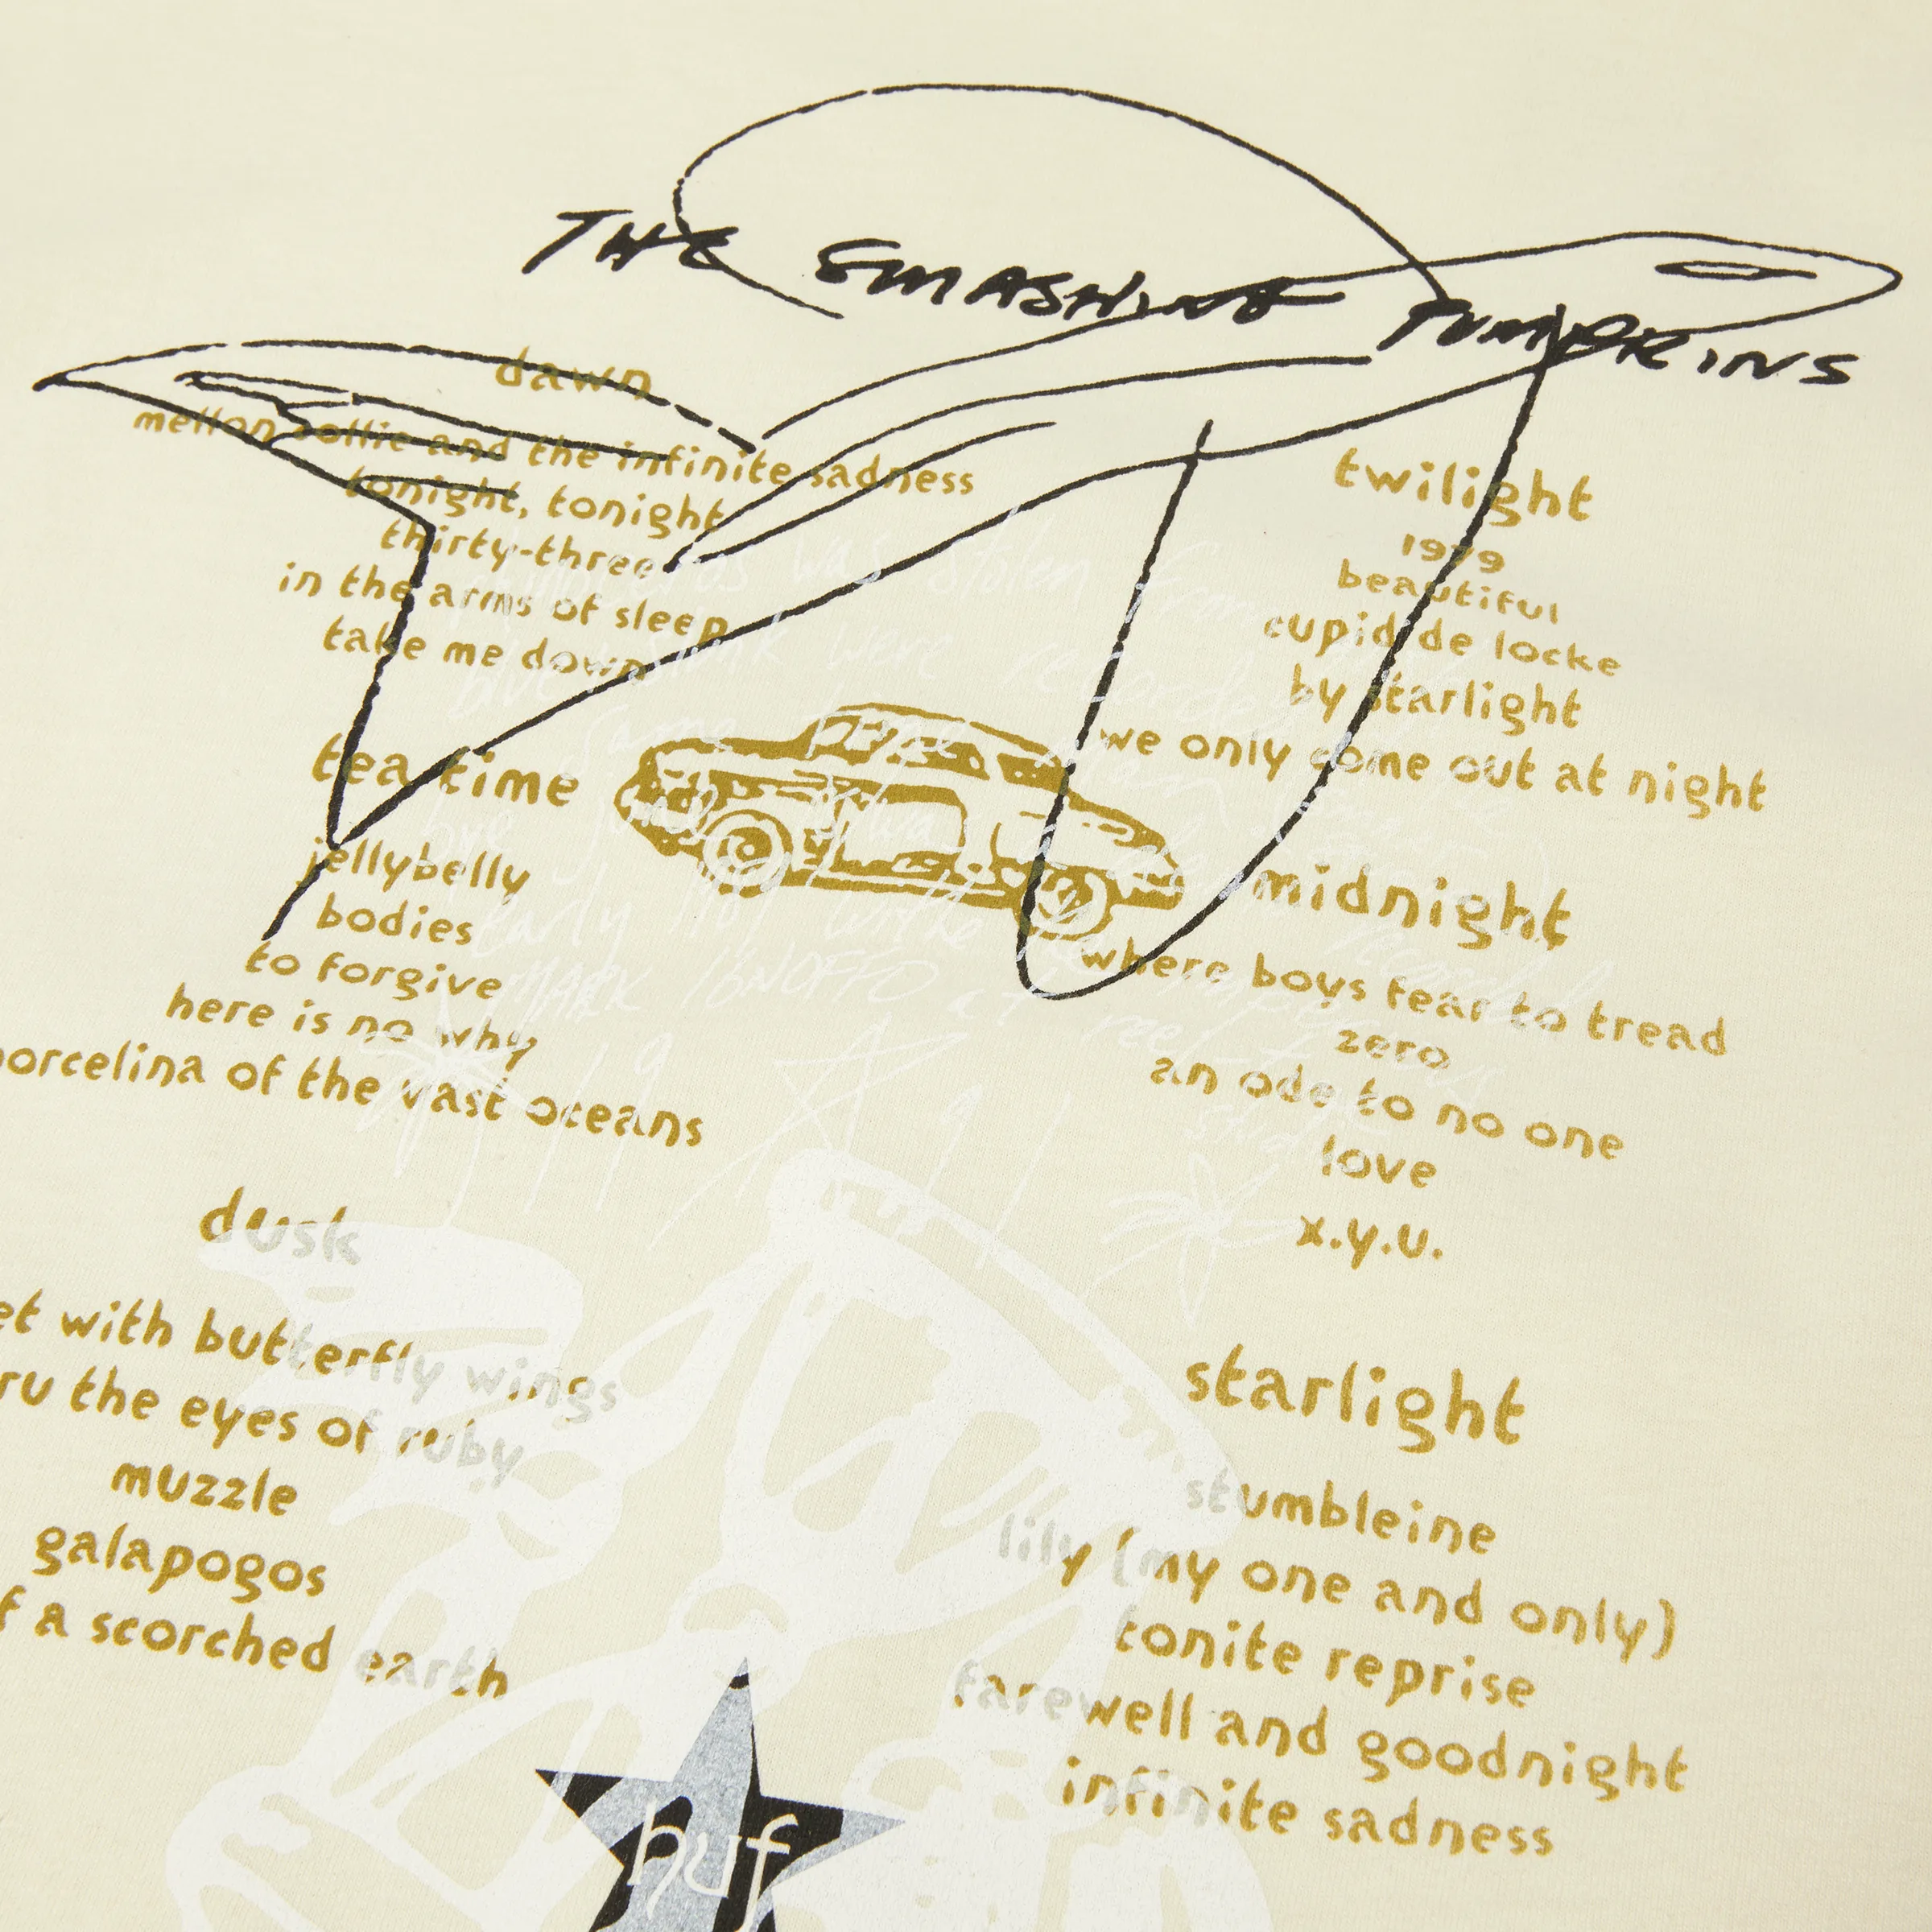 THE SMASHING PUMPKINS
dawn
mellon collie and the infinite sadness
tonight, tonight
thirty-three
in the arms of sleep
take me down
tea time
jellybelly
bodies
to forgive
here is no why
porcelina of the vast oceans
dusk
et with butterfly wings
ru the eyes of ruby
muzzle
galapogos
f a scorched earth
twilight
1979
beautiful
cupid de locke
by starlight
we only come out at night
midnight
where boys fear to tread
zero
an ode to no one
love
x.y.u.
starlight
stumbleine
lily (my one and only)
tonite reprise
farewell and goodnight
infinite sadness
was stolen from
were recorded
same
early
MARK IGNOFFO at
huf